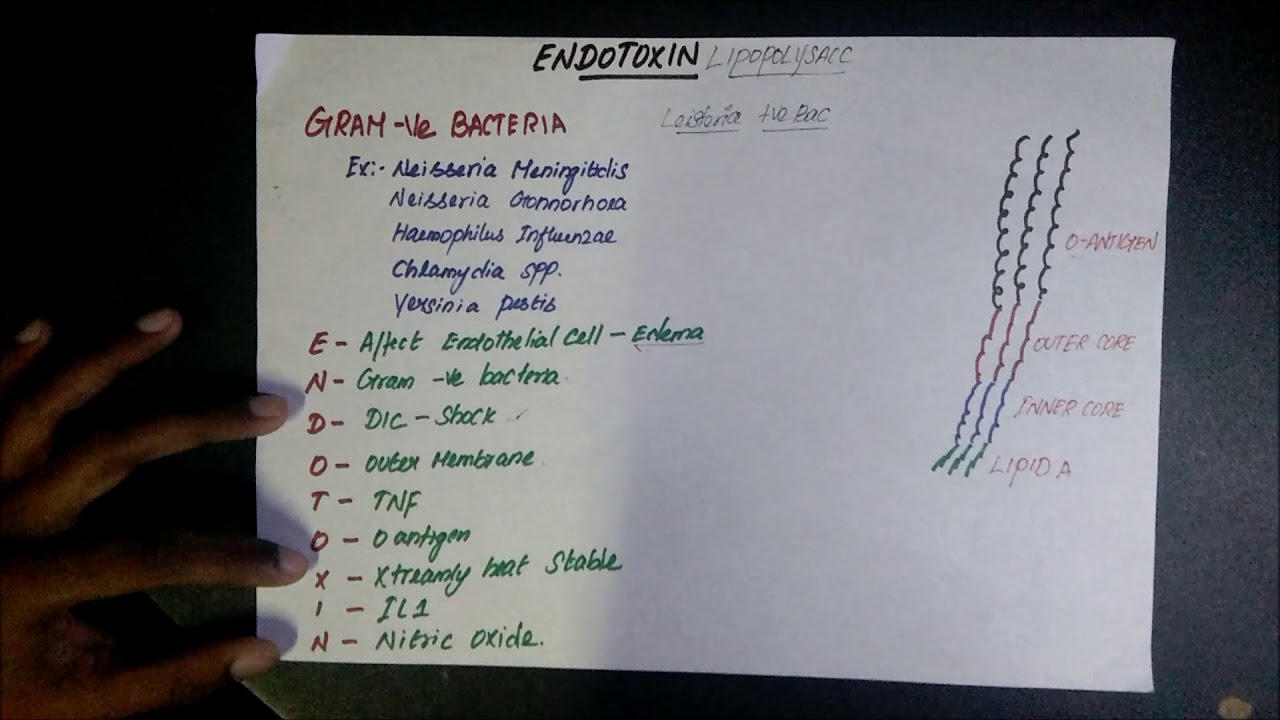 ENDOTOXIN LIPOPOLYSACC
GRAM -Ve BACTERIA
Leisteria +ve Bac
Ex:- Neisseria Meningitidis
Neisseria Gonnorhoea
Haemophilus Influenzae
Chlamydia spp.
Yersinia pestis
E - Affect Endothelial Cell - Edema
N - Gram -ve bacteria.
D - DIC - Shock
O - Outer Membrane
T - TNF
O - O antigen
X - Xtreamly heat Stable
I - IL1
N - Nitric Oxide.
O-ANTIGEN
OUTER CORE
INNER CORE
LIPID A